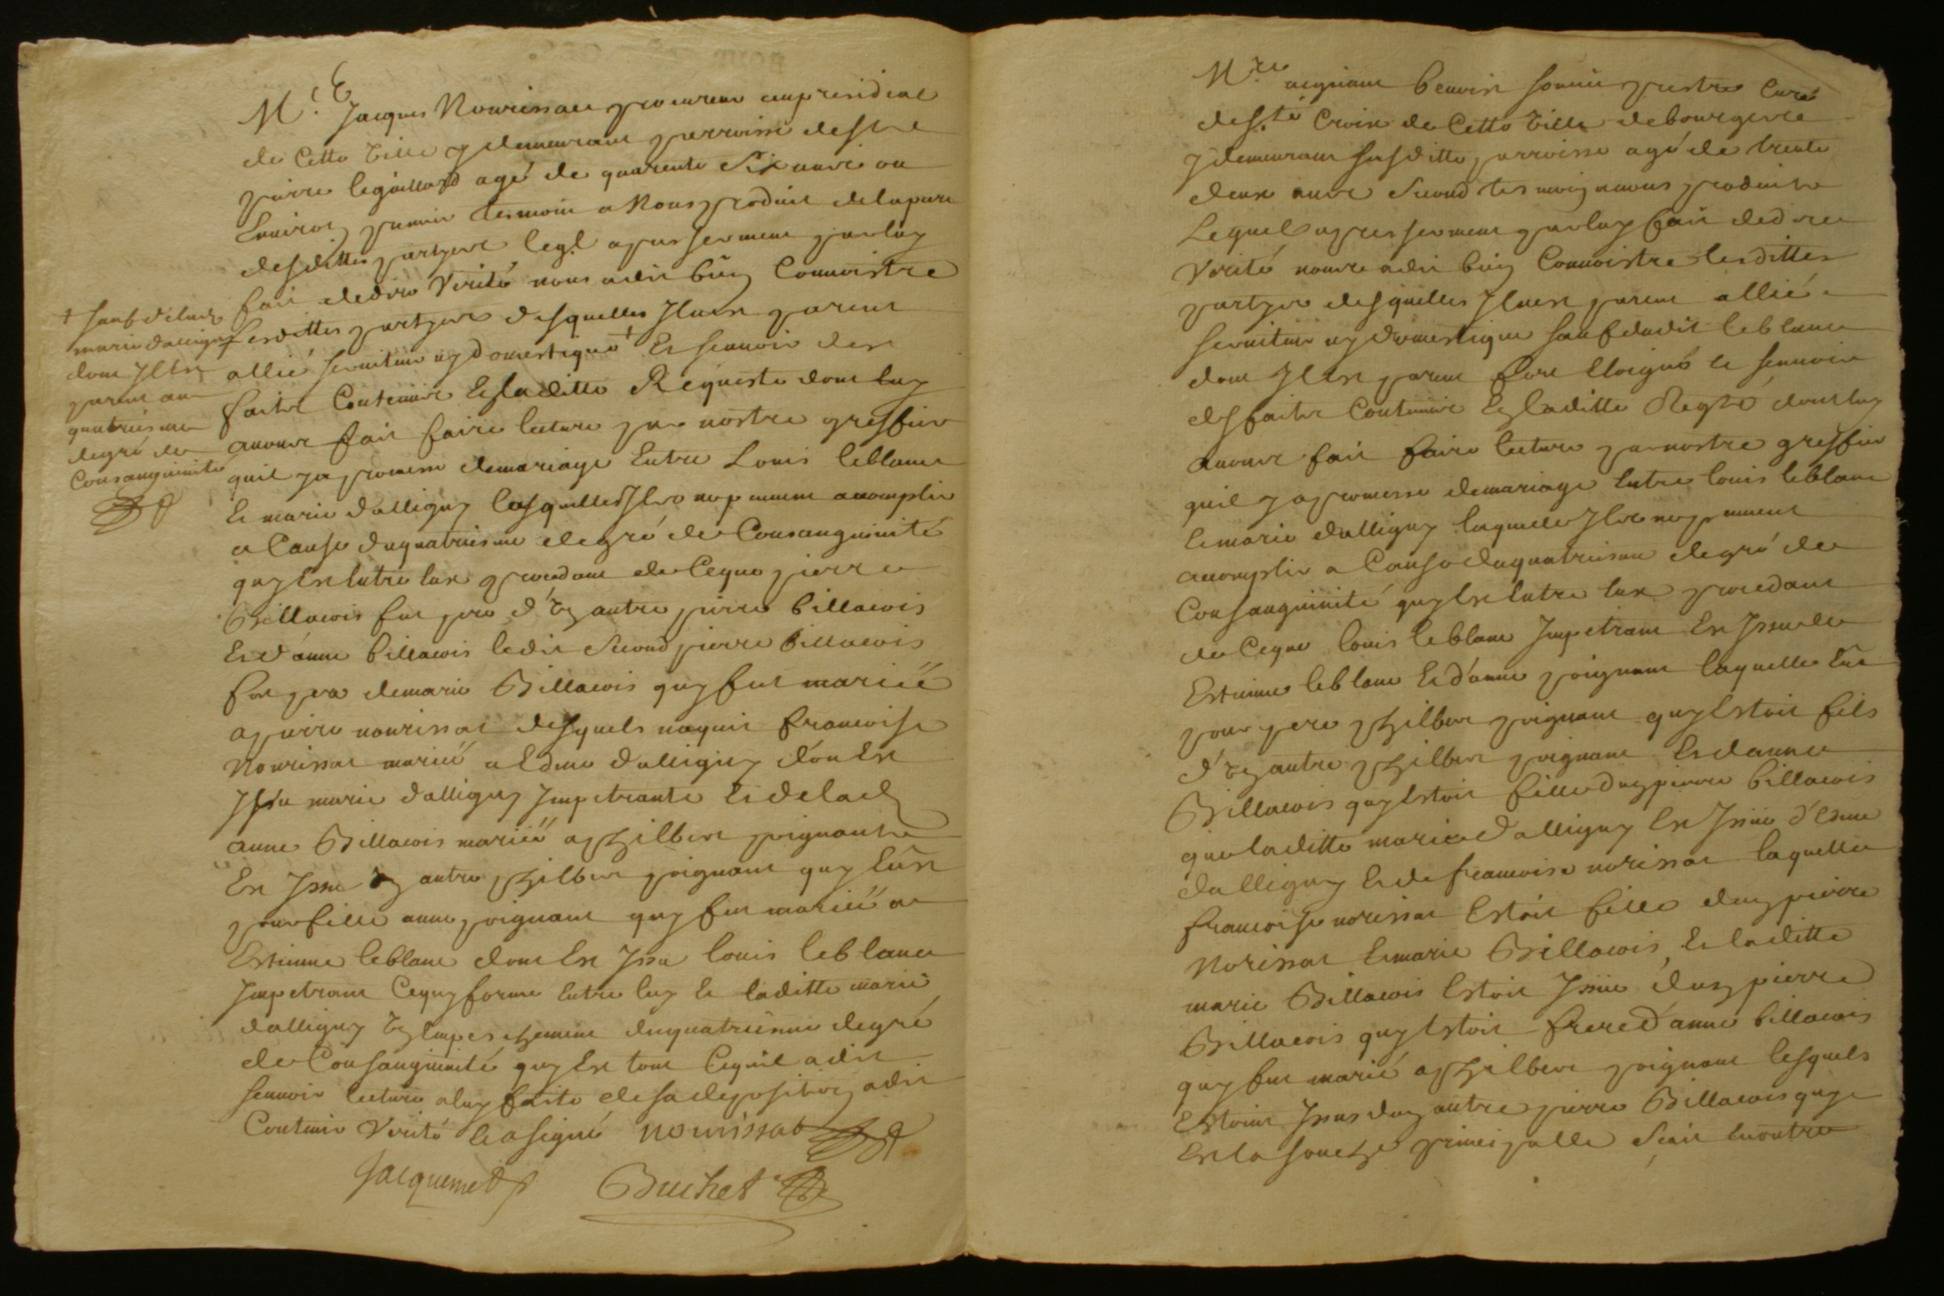 Mre Jacques Nourissat procureur au presidial
de Cette Ville y demeurant parroisse de St
pierre le guillard agé de quarente Six ans ou
Environ premier tesmoin a Nous produit de la part
desdittes partyes leql apres serment par luy
fait de dire Verité nous a dit bien Connoistre
lesdittes partyes desquelles Il n'est parent
allié serviteur ny domestique + Et scavoir les
faits Contenus En laditte Requeste dont luy
avons fait faire lecture par nostre greffier
quil y a promesse de mariage Entre Louis leblanc
Et marie dalligny lesquelles Ils ne peuvent accomplir
a Cause du quatriesme degré de Consanguinité
quy Est Entre Eux procedant de Ce que pierre
Billacois fut pere d'Un autre pierre billacois
Et d'anne billacois ledit Second pierre Billacois
fut pere de marie Billacois quy fut mariée
a pierre nourissat desquels naquit francoise
Nourissat mariée a Edme dalligny d'ou Est
Issu marie dalligny Impetrante Et de lad
anne Billacois mariée a philbert poignant
Est Issu Un autre philbert poignant quy Eust
pour fille anne poignant quy fut mariée a
Estienne leblanc dont Est Issu louis leblanc
Impetrant Ce quy forme Entre luy Et laditte marie
dalligny Un Empeschement du quatriesme degré
de Consanguinité quy Est tout Ce quil a dit
scavoir lecture a luy faite de sa deposition a dit
Contenir Verité Et a signé nourissat
Jacquemet Buchet
+ sauf de lad
marie dalligny
dont Il Est
parent au
quatriesme
degré de
Consanguinité
Mre poignant prestre Curé
de Ste Croix de Cette Ville de bourges
y demeurant susditte parroisse agé de trente
deux ans Second tesmoin a nous produit
Lequel apres serment par luy fait de dire
Verité nous a dit bien Connoistre lesdittes
partyes desquelles Il n'est parent allié
serviteur ny domestique sauf dudit leblanc
dont Il Est parent fort Eloigné Et scavoir
les faits Contenus En laditte Reqte dont luy
avons fait faire lecture par nostre greffier
quil y a promesse de mariage Entre louis leblanc
Et marie dalligny laquelle Ils ne peuvent
accomplir a Cause du quatriesme degré de
Consanguinité quy Est Entre Eux procedant
de Ce que louis leblanc Impetrant Est Issu de
Estienne leblanc Et d'anne poignant laquelle Eut
pour pere philbert poignant quy Estoit fils
d'Un autre philbert poignant Et d'anne
Billacois quy Estoit fille d'un pierre billacois
que laditte marie dalligny Est Issue d'Edme
dalligny Et de francoise norissat laquelle
francoise norissat Estoit fille d'un pierre
Norissat Et marie Billacois, Et laditte
marie Billacois Estoit Issue d'un pierre
Billacois quy Estoit frere d'anne billacois
quy fut marié a philbert poignant lesquels
Estoient Issus d'un autre pierre Billacois quy
Est la souche principalle Scait En outre